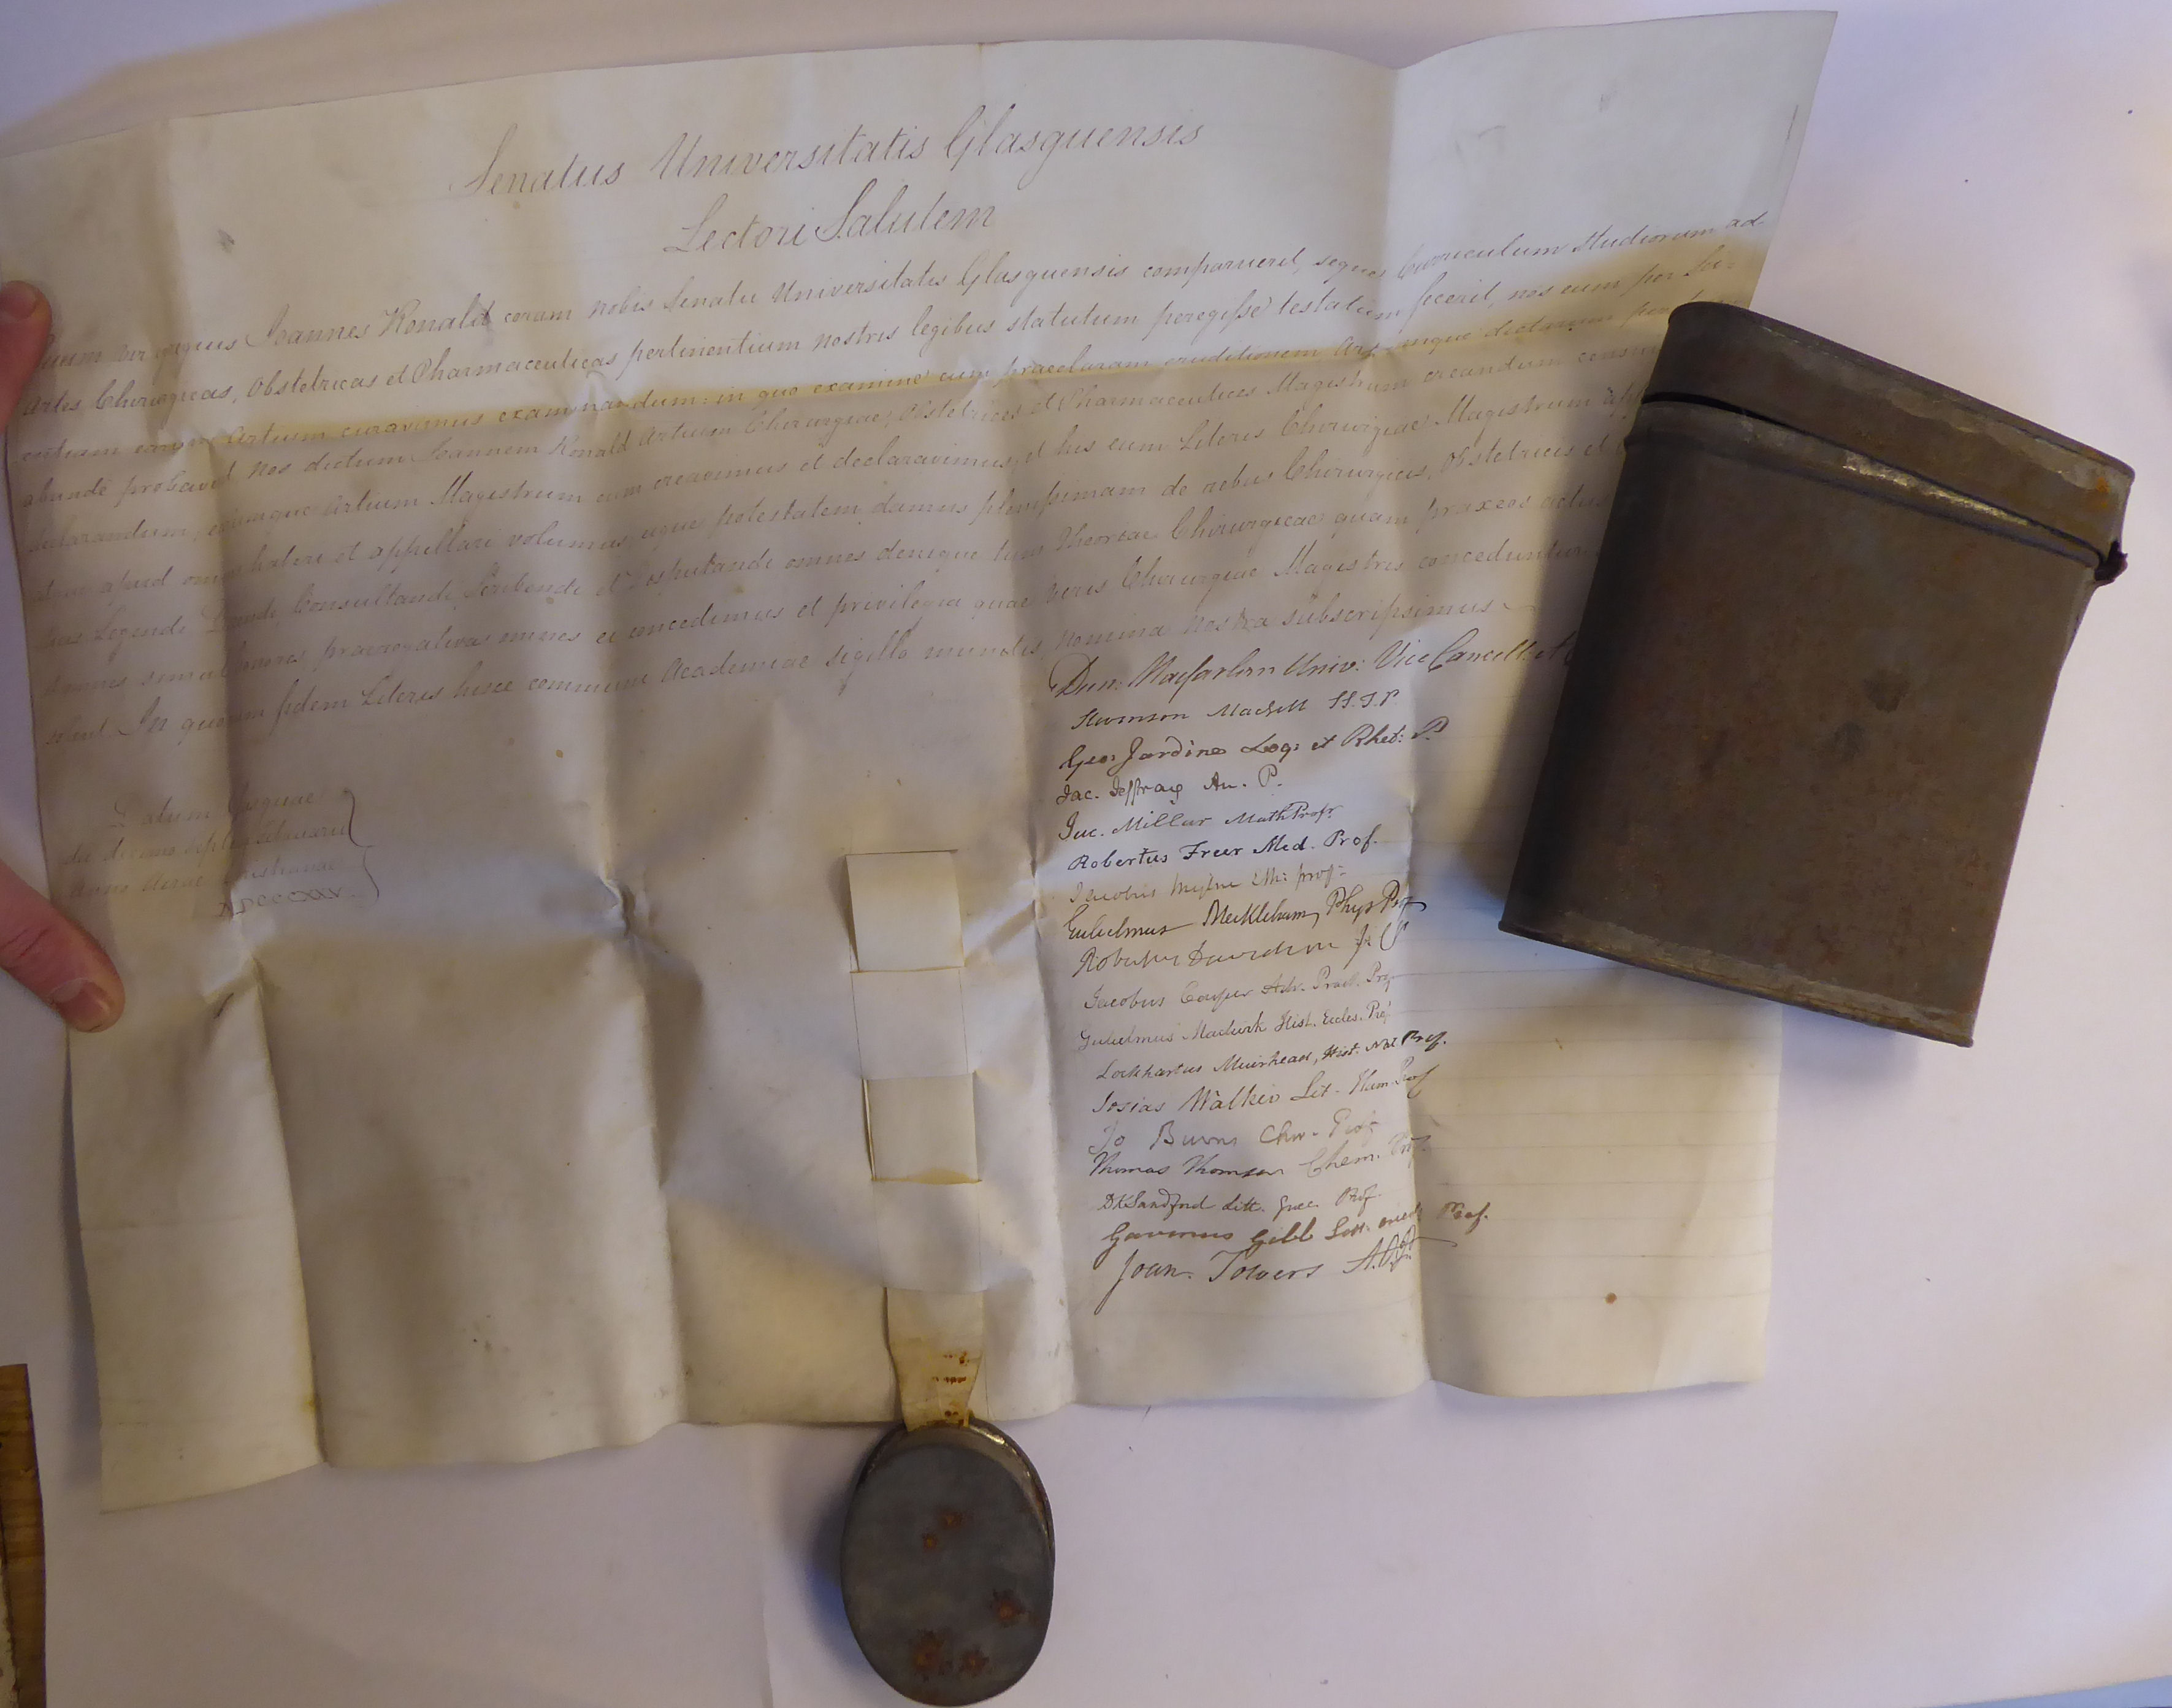 Senatus Universitatis Glasguensis
Lectori Salutem
Quum vir ingenuus Joannes Ronald coram nobis Senatu Universitatis Glasguensis comparuerit, seque Curriculum Studiorum ad
Artes Chirurgicas, Obstetricas et Pharmaceuticas pertinentium nostris legibus statutum peregisse testatum fecerit, nos eum per
earum Artium curavimus examinandum: in quo examine cum praeclaram eruditionem
abunde probaverit Nos dictum Joannem Ronald Artium Chirurgiae, Obstetrices et Pharmaceutices Magistrum creandum
declarandum, earumque Artium Magistrum eum creavimus et declaravimus, et his eum Literis Chirurgiae Magistrum
apud omnes haberi et appellari volumus, eique potestatem damus plenissimam de rebus Chirurgicis, Obstetricis et
Legendi Docendi Consultandi Scribendi et Disputandi omnes denique tum Theoriae Chirurgicae quam praxeos actus
simul honores praerogativas omnes ei concedimus et privilegia quae veris Chirurgiae Magistris conceduntur
solent In quorum fidem Literis hisce communi Academiae sigillo munitis, nomina nostra subscripsimus
Datum Glasguae
die decimo
Anno Aerae Christianae
MDCCCXXV.
Dun: Macfarlan Univ: Vice Cancell:
Geo: Jardine Log: et Rhet: P.
Jac. Jeffray An. P.
Jac. Millar Math Profr
Robertus Freer Med. Prof.
Jacobus Mylne Eth: prof:
Gulielmus Meikleham, Phys Prof
Robertus Davidson J. C. P.
Jacobus Couper Astr. Pract. Prof
Gulielmus Macturk Hist. Eccles. Prof
Lockhartus Muirhead, Hist: Nat Prof.
Josias Walker Lit. Hum. Prof
Jo Burns Chir. Prof
Thomas Thomson Chem. Prof.
DKSandford Litt. Graec. Prof.
Gavinus Gibb Litt. orient. Prof.
Joan. Towers